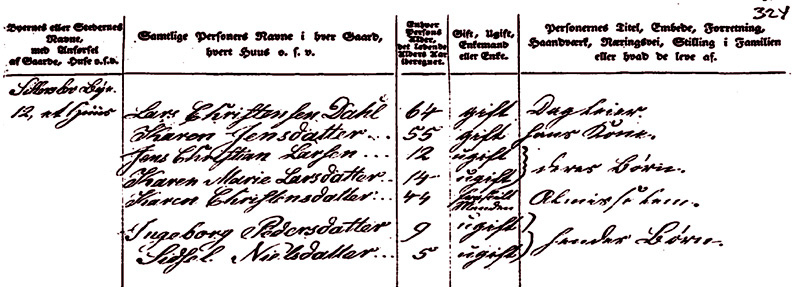 324
Byernes eller Stedernes Navne, med Anførsel af Gaarde, Huse o.s.v.
Samtlige Personers Navne i hver Gaard, hvert Huus o. s. v.
Enhver Persons Alder, det løbende Alders Aar iberegnet.
Gift, Ugift, Enkemand eller Enke.
Personernes Titel, Embede, Forretning, Haandværk, Næringsvei, Stilling i Familien eller hvad de leve af.
Bye.
12, et Huus Lars Christenssen Dahl 64 gift Dagleier.
Karen Jensdatter... 55 gift hans Kone.
Jens Christian Larsen... 12 ugift } deres Børn.
Karen Marie Larsdatter... 14 ugift
Karen Christensdatter... 44 Manden Almisselem.
Ingeborg Pedersdatter 9 ugift } hendes Børn.
Sidsel Nielsdatter... 5 ugift